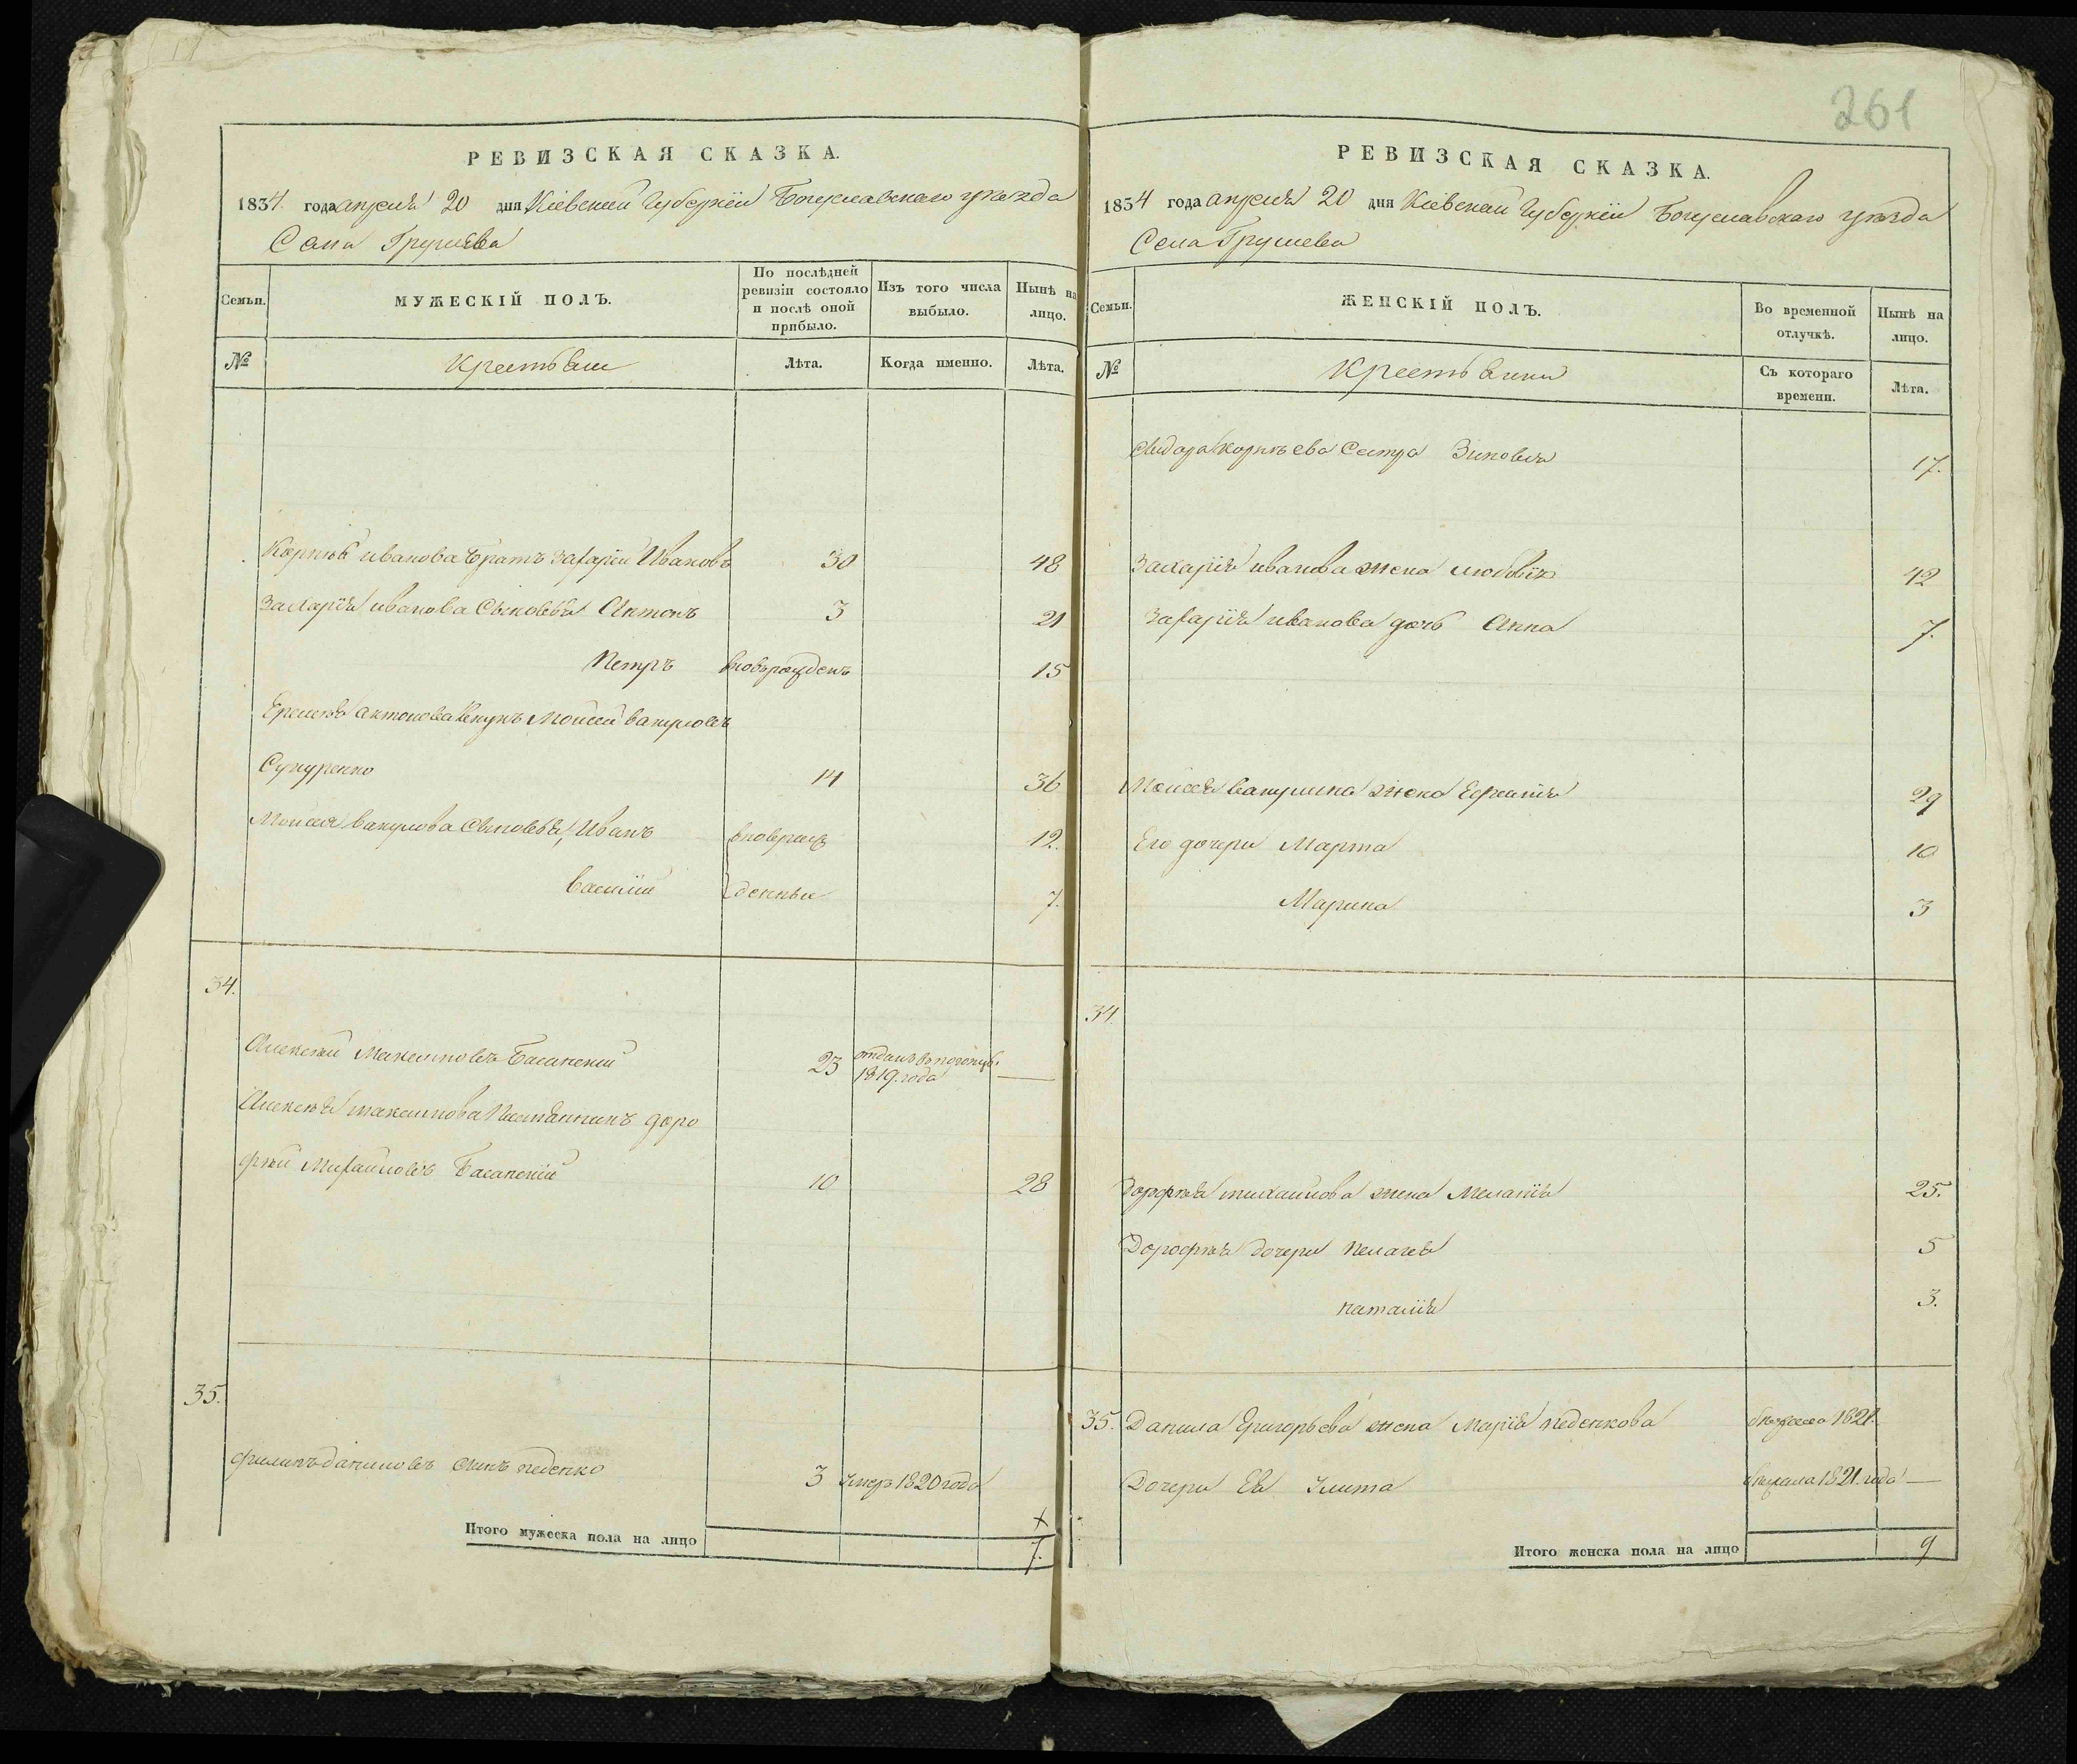 261
РЕВИЗСКАЯ СКАЗКА.
1834 года апреля 20 дня Кіевской Губерніи Богуславскаго уѣзда
Села Грушева
Семьи.
МУЖЕСКІЙ ПОЛЪ.
По послѣдней ревизіи состояло и послѣ оной прибыло.
Изъ того числа выбыло.
Нынѣ на лицо.
№
Крестьяне
Лѣта.
Когда именно.
Лѣта.
Корнѣя иванова братъ Захарій Ивановъ 30 48
Захарія иванова Сыновья Антонъ 3 21
Петръ вновьрожденъ 15
Еремѣя антонова Внукъ Моисей вакуловъ
14 36
Моисея вакулова Сыновья, Иванъ вноврож 12.
василій денные 7.
34.
Алексѣй Максимовъ Басанскій 23 отданъ в 1819. года —
Алексѣя максимова Племянникъ доро
фѣй Михайловъ Басанскій 10 28
35.
филипъ даниловъ сынъ педенко 3 умеръ 1820 года
Итого мужеска пола на лицо 7.
РЕВИЗСКАЯ СКАЗКА.
1834 года апреля 20 дня Кіевской Губерніи Богуславскаго уѣзда
Села Грушева
Семьи.
ЖЕНСКІЙ ПОЛЪ.
Во временной отлучкѣ.
Нынѣ на лицо.
№
Крестьянки
Съ котораго времени.
Лѣта.
Сидора Корнѣева Сестра Зиновія 17.
Захарія иванова жена любовъ 42
Захарія иванова дочь Анна 7.
Моисея вакулина жена Евгенія 29
Его дочери Марта 10
Марина 3
34.
Дорофѣя михайлова жена Меланія 25.
Дорофѣя дочери пелагея 5
наталія 3.
35. Данила Григорьева жена Марія педенкова 1821.
Дочери Ев Улита 1821. года —
Итого женска пола на лицо 9